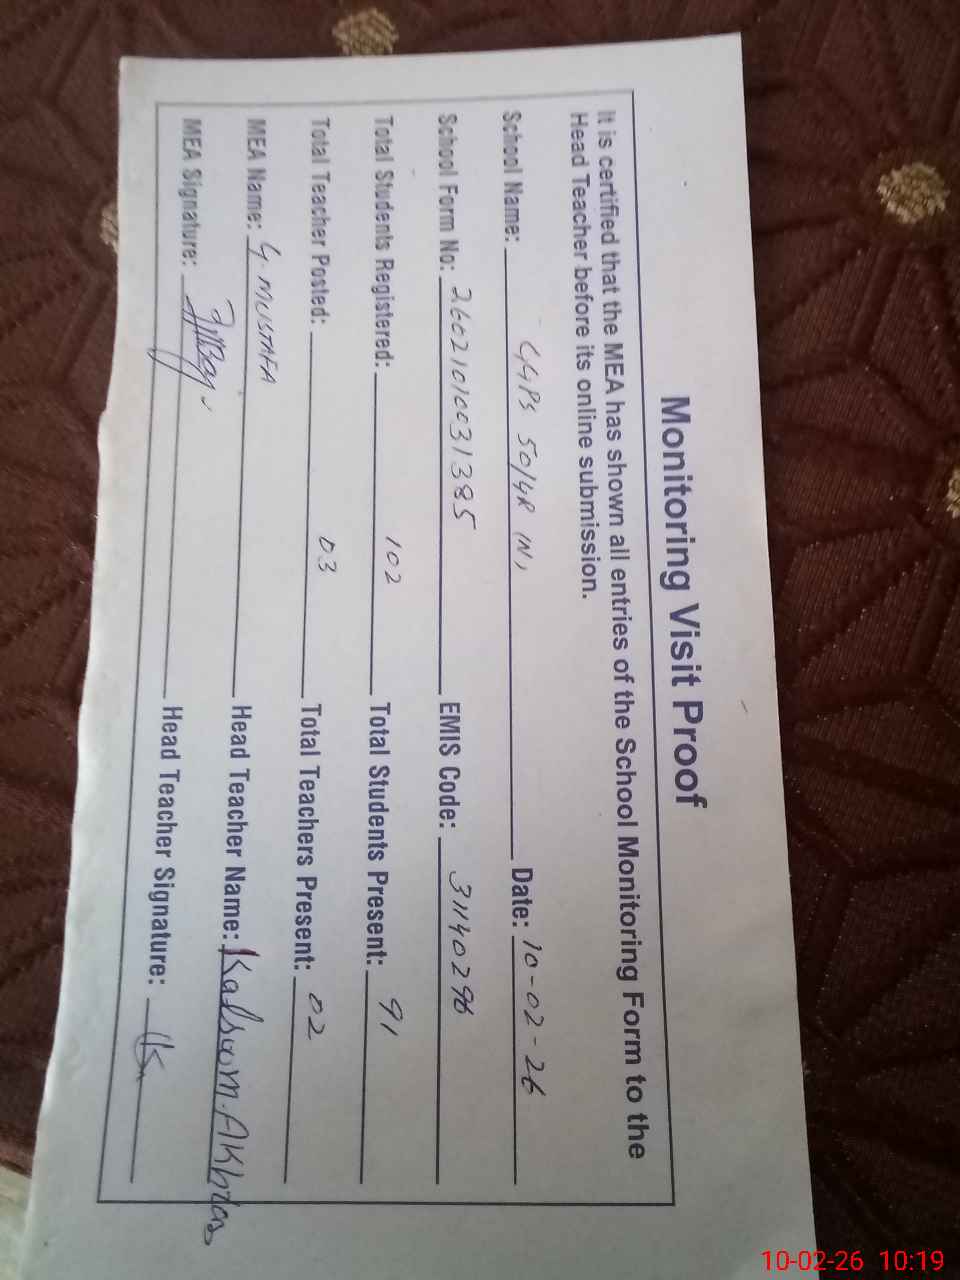 Monitoring Visit Proof
It is certified that the MEA has shown all entries of the School Monitoring Form to the
Head Teacher before its online submission.
School Name: GGPS 50/4R (N) Date: 10-02-26
School Form No: 26021010031385 EMIS Code: 31140296
Total Students Registered: 102 Total Students Present: 91
Total Teacher Posted: 03 Total Teachers Present: 02
MEA Name: G. MUSTAFA Head Teacher Name: Kalsoom Akhtar
MEA Signature: Head Teacher Signature:
10-02-26 10:19